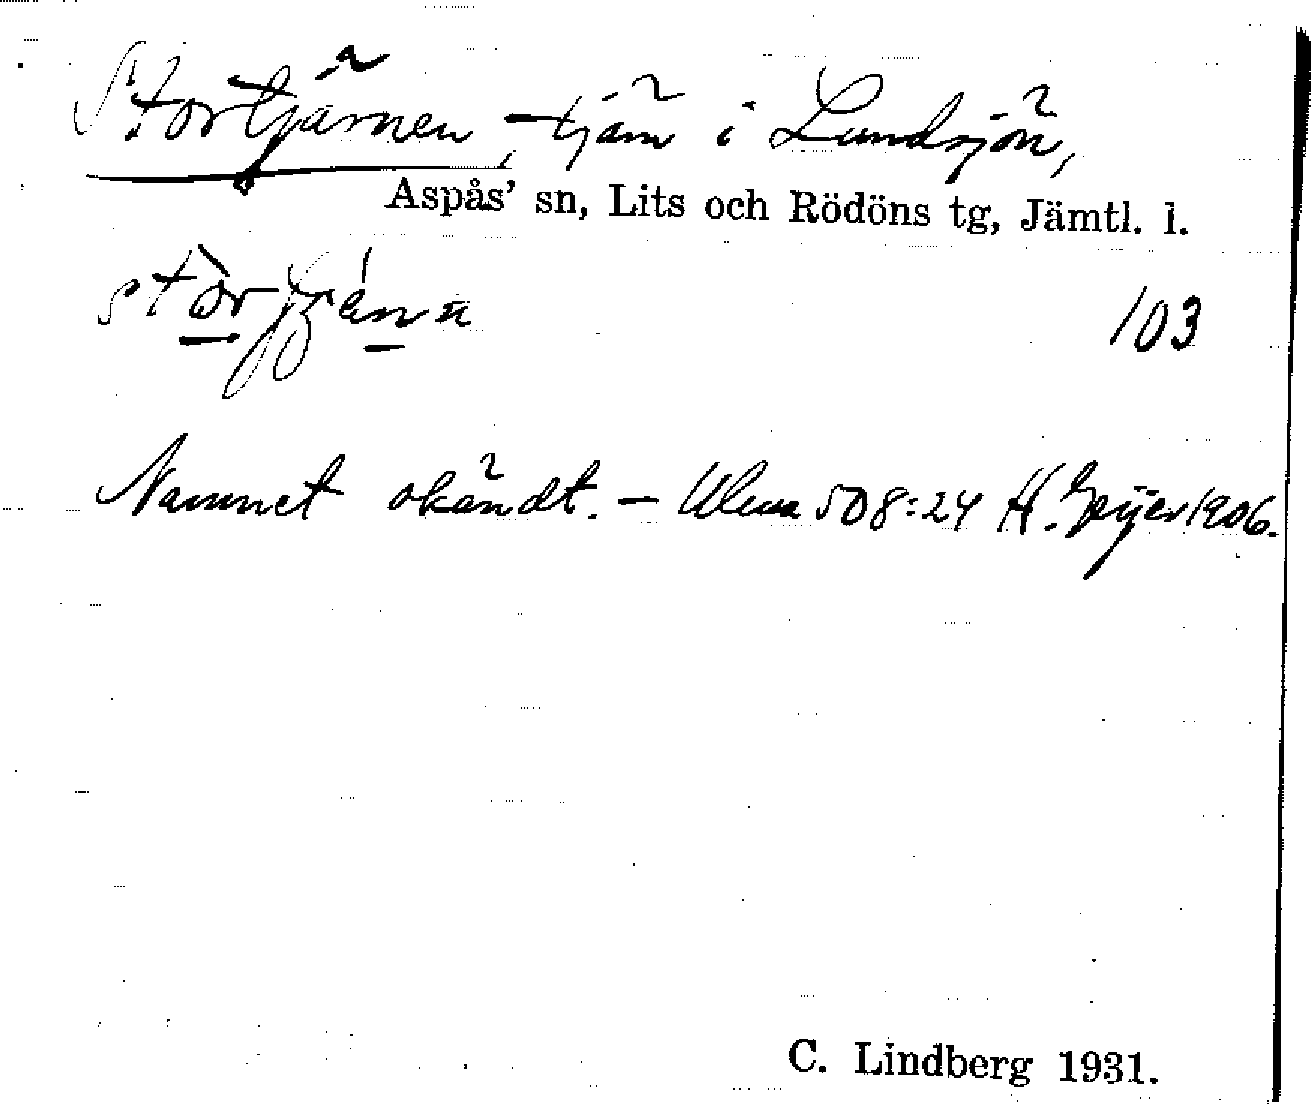 Stortjärnen, tjärn i Lundsjön,
Aspås' sn, Lits och Rödöns tg, Jämtl. l.
103
Namnet okändt. – Ulma 508:24 H. Geijer 1906.
C. Lindberg 1931.